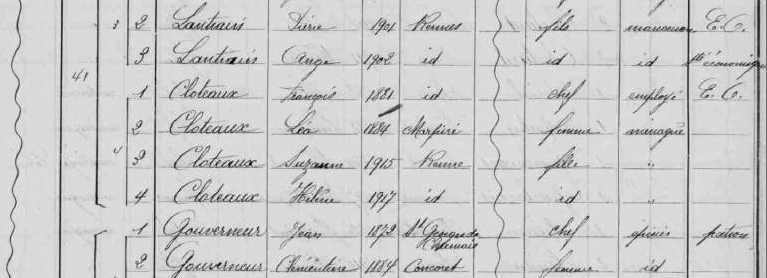 3 2 Lantrain Pierre 1901 Rennes fils manœuvre E. C.
3 Lantrain Ange 1902 id id id Sté économique
41
1 Cloteaux François 1881 id chef employé E. C.
2 Cloteaux Léa 1884 Marpiré femme ménagère
4 3 Cloteaux Suzanne 1915 Rennes fille "
4 Cloteaux Hélène 1917 id id "
1 Gouverneur Jean 1872 St chef épicier patron
2 Gouverneur Clémentine 1884 Concoret femme id